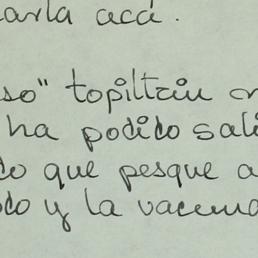 arla acá.
so" topiltziu
ha podido sali
do que pesque a
do y la vacuna